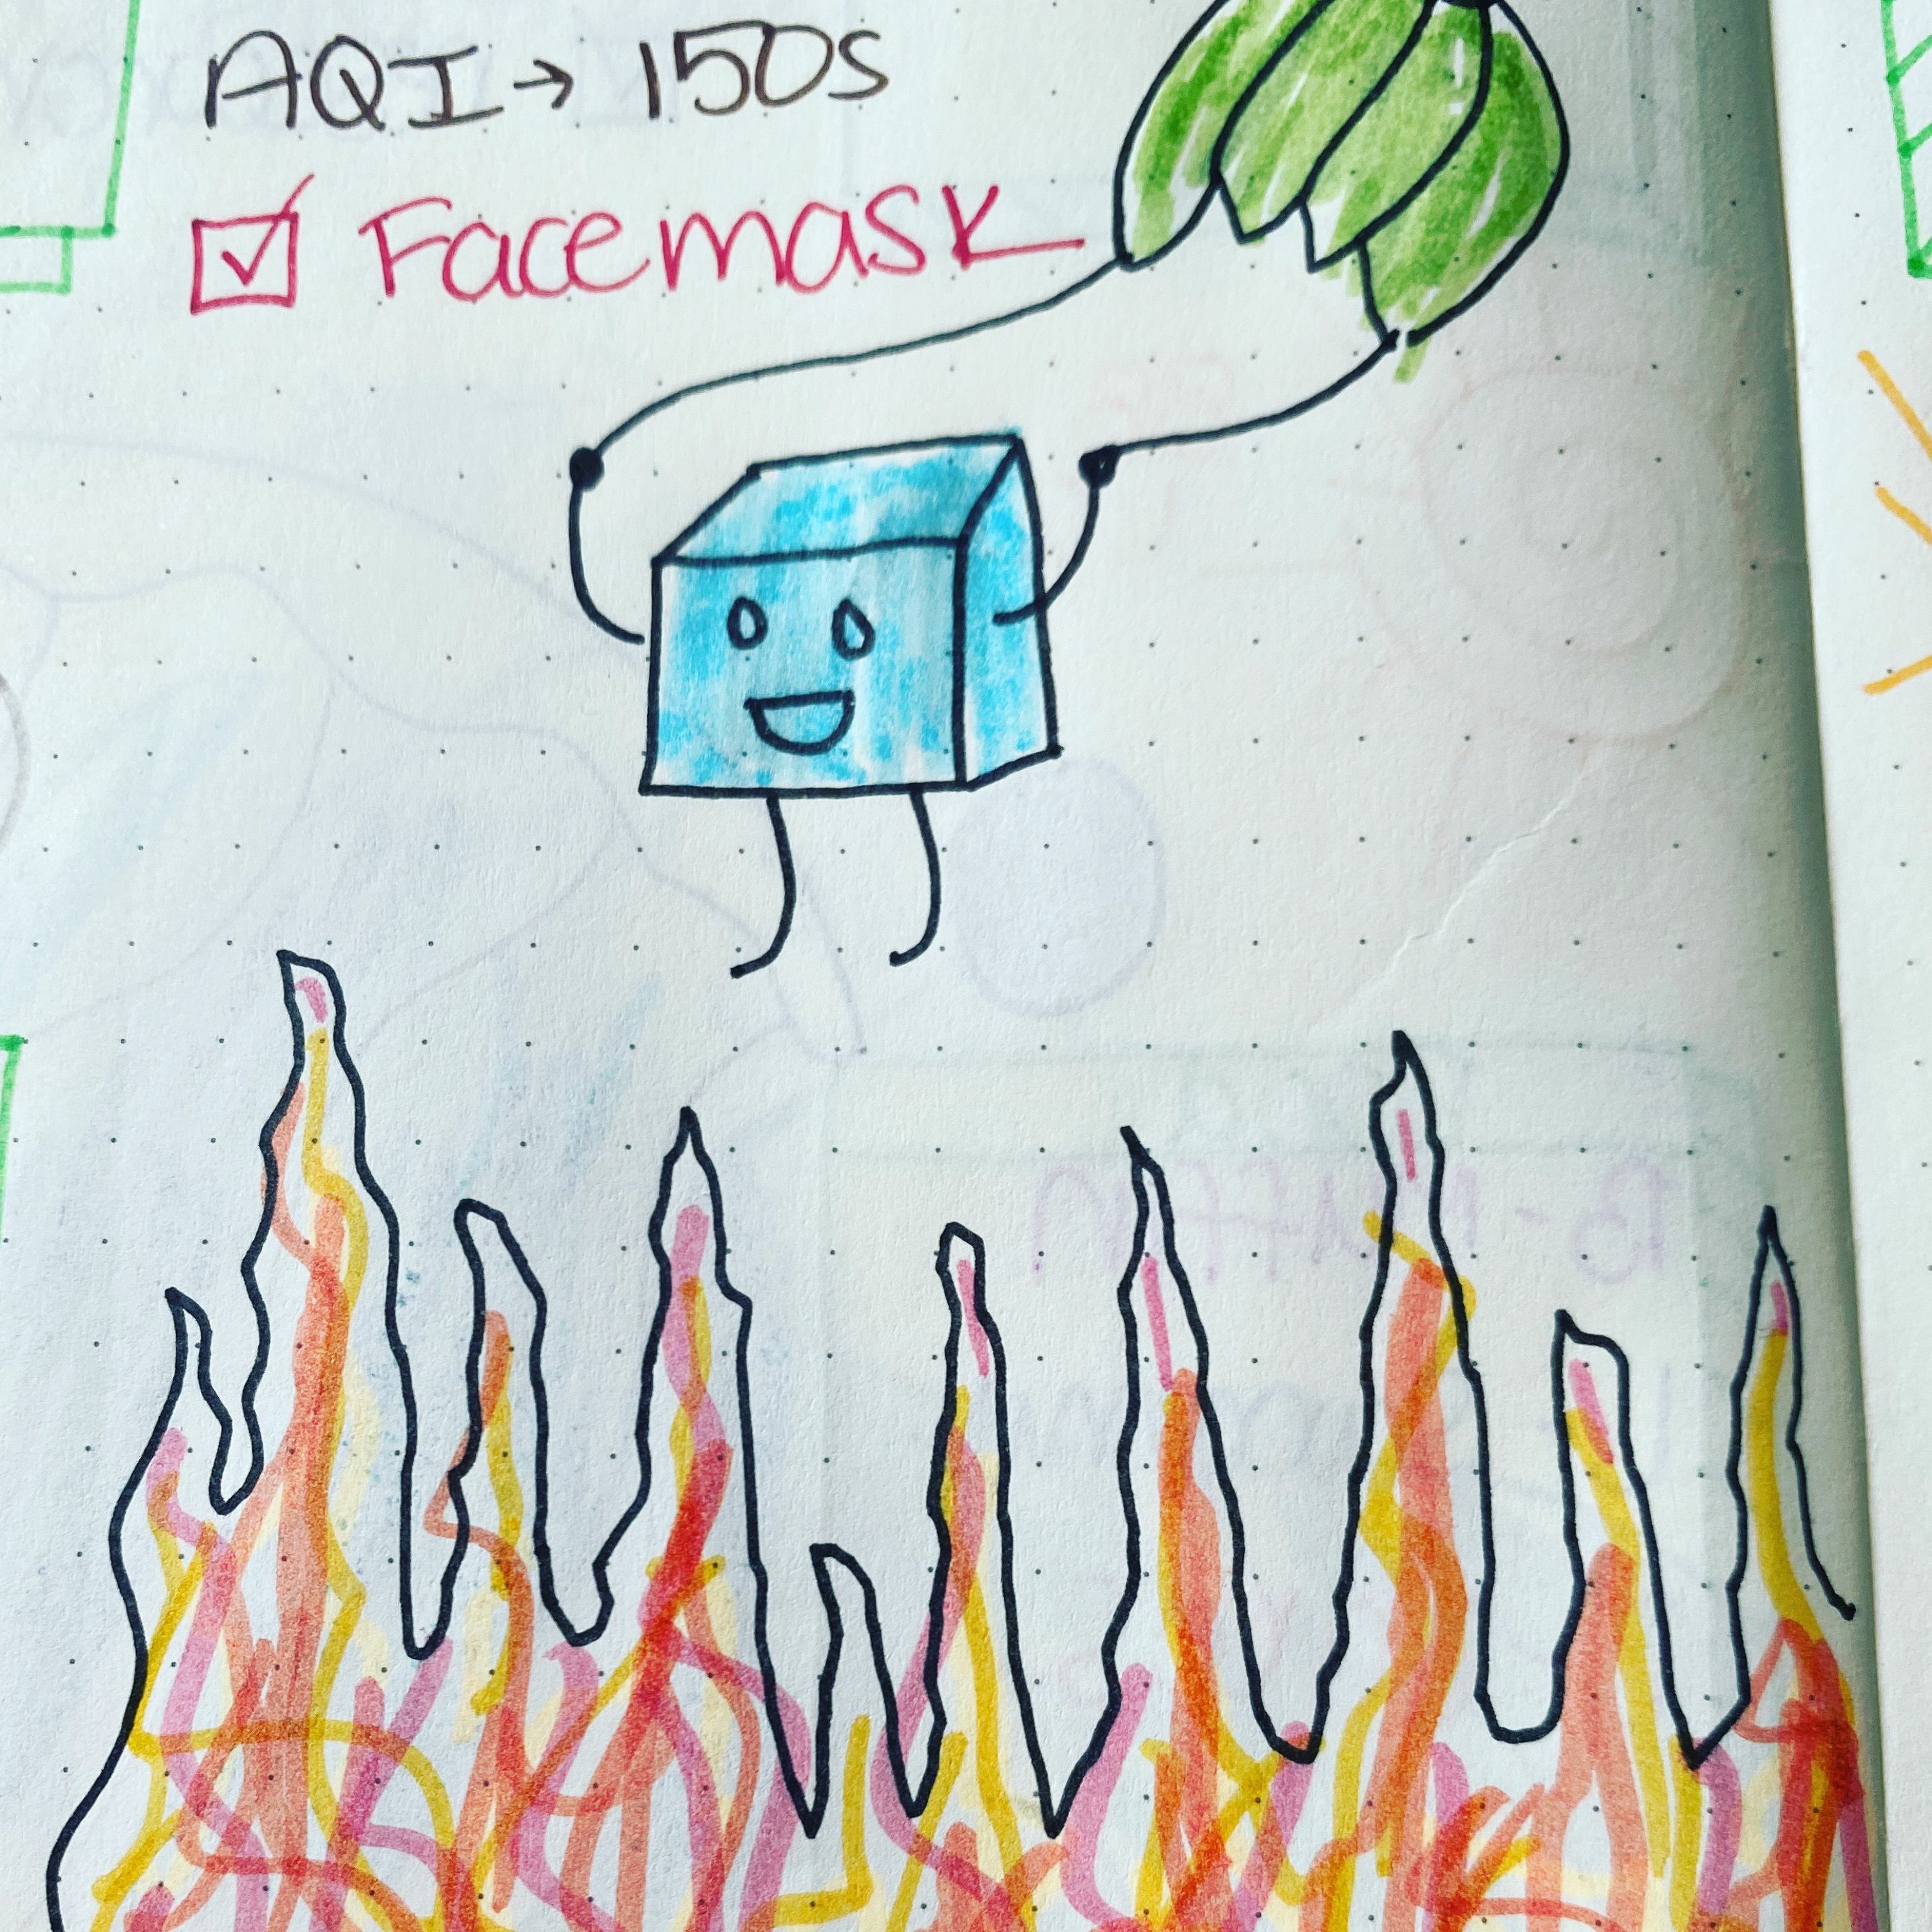 AQI → 150s
☑ Facemask